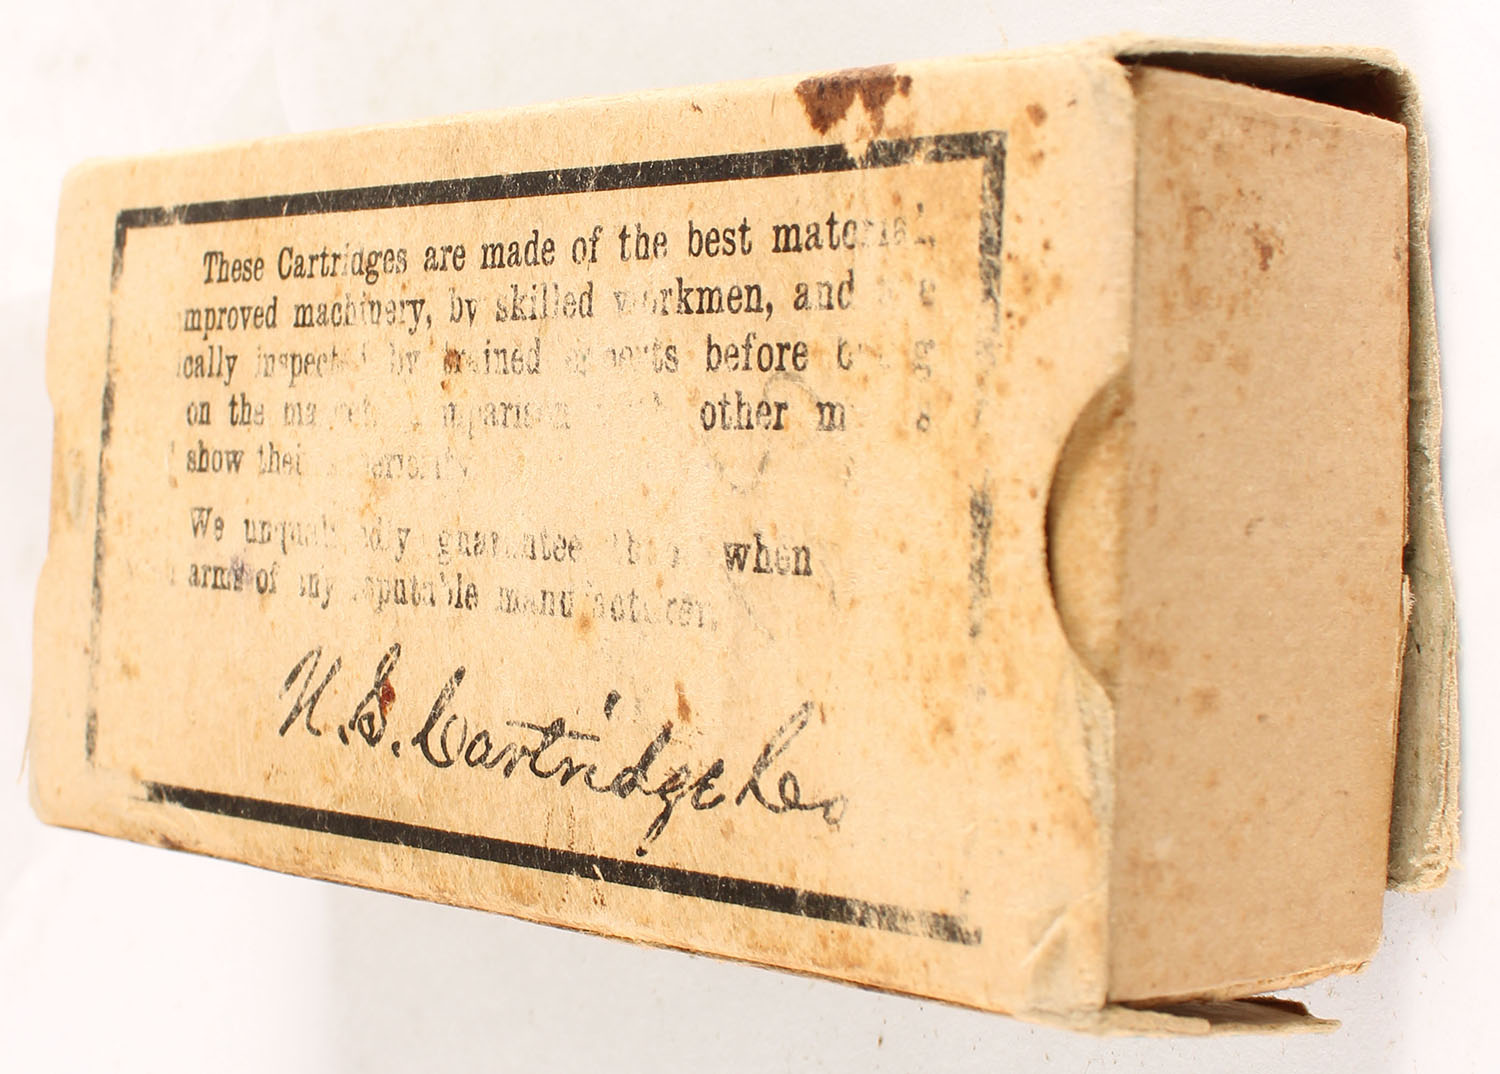 These Cartridges are made of the best material,
improved machinery, by skilled workmen, and
ically inspected by trained experts before being
on the market. Comparison with other m
show their superiority.
We unqualifiedly guarantee them when
arms of any reputable manufacturer.
U.S. Cartridge Co.